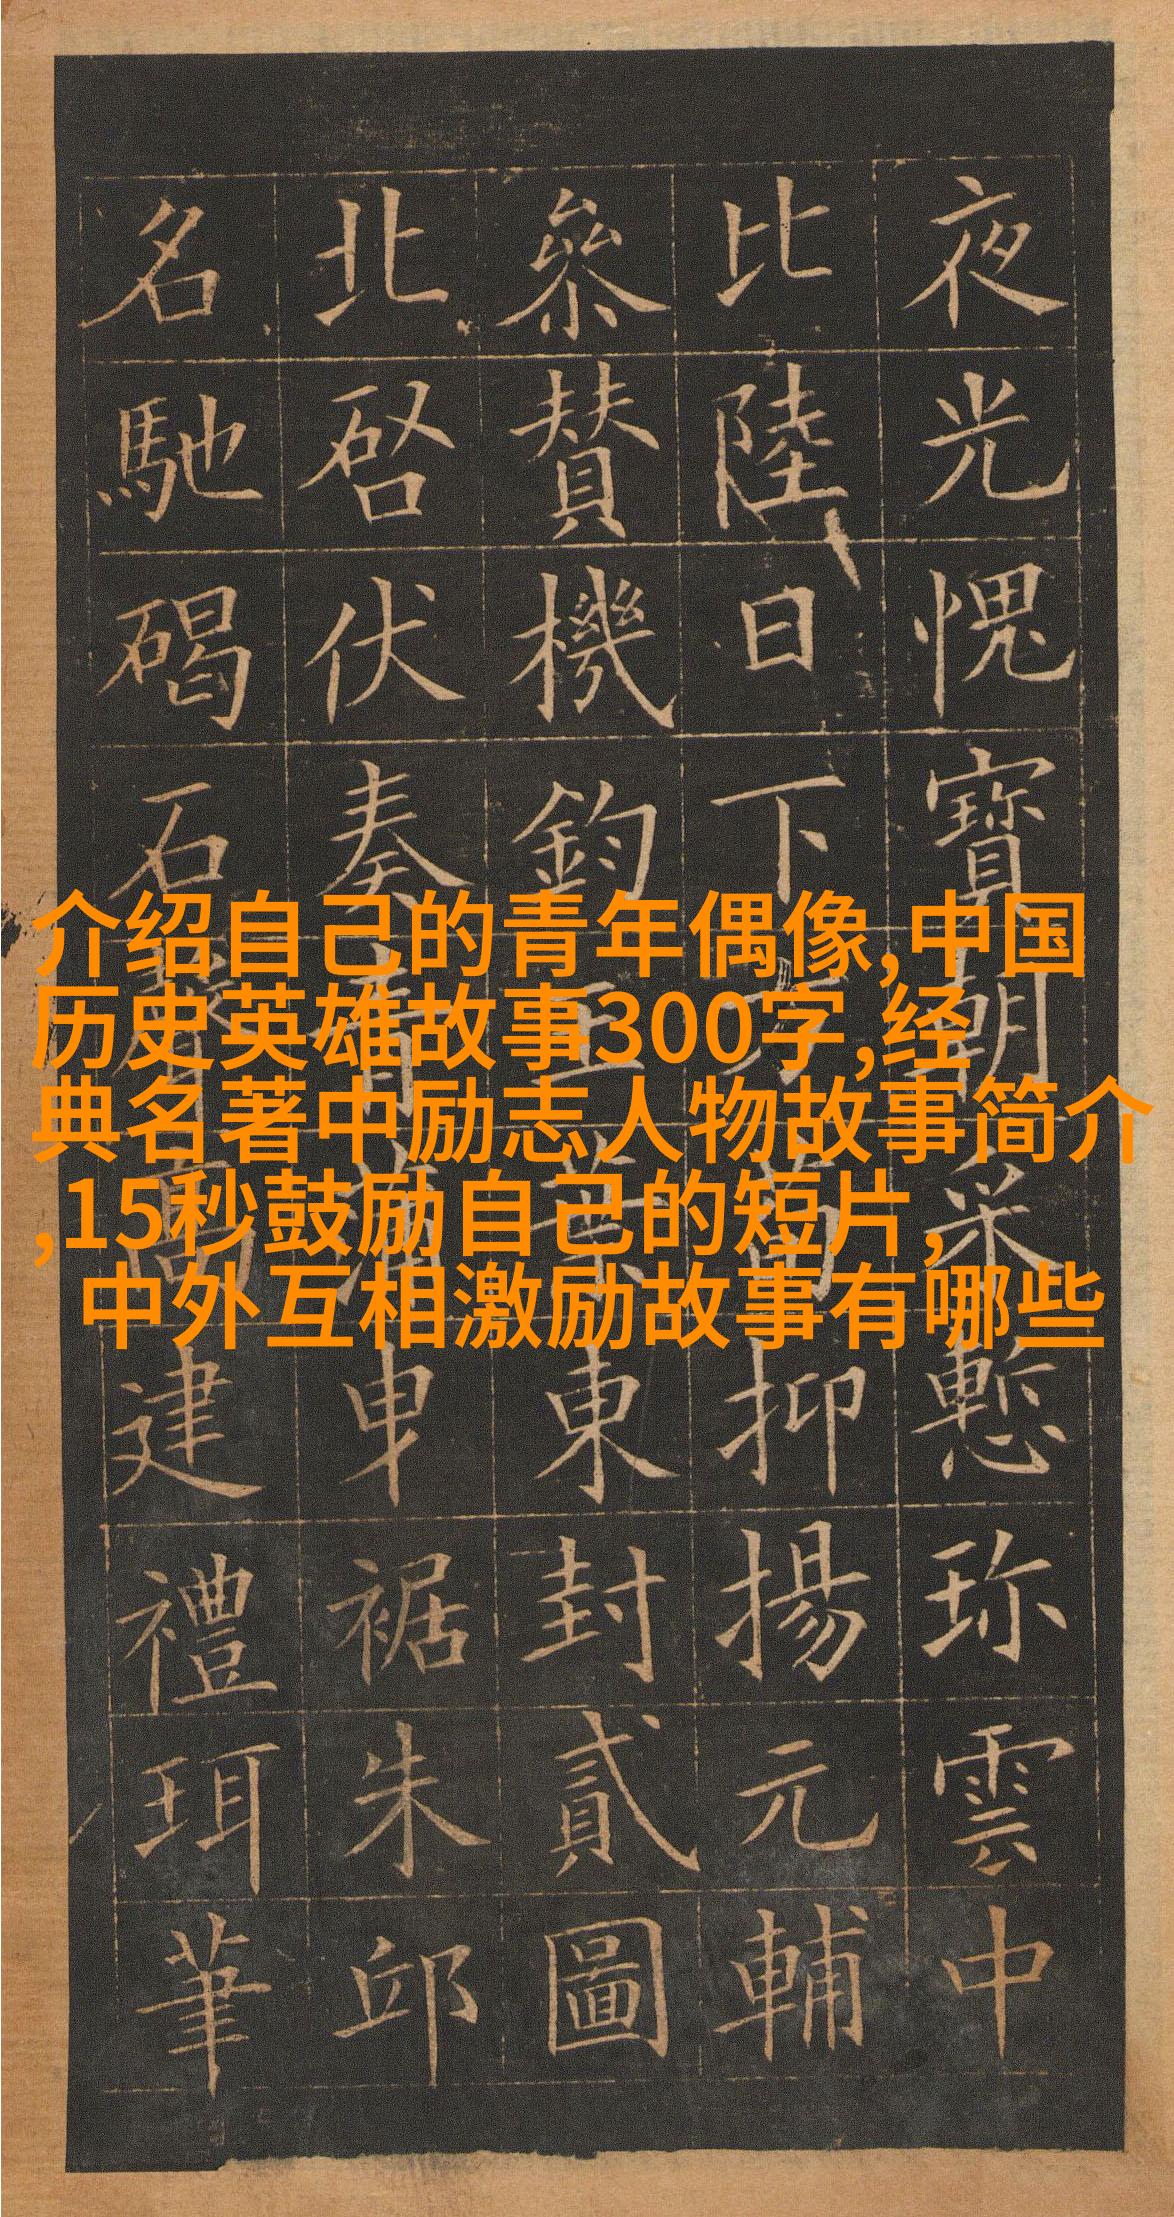 介绍自己的青年偶像,中国
历史英雄故事300字,经
典名著中励志人物故事简介
,15秒鼓励自己的短片,
中外互相激励故事有哪些
夜光愧寶朝采慙珎雲中
比陸日下抑揚元輔
參賛機鈞東封貳圖
北啓伏奏青蒲曳裾朱邸
名馳碣石聲高建禮珥筆